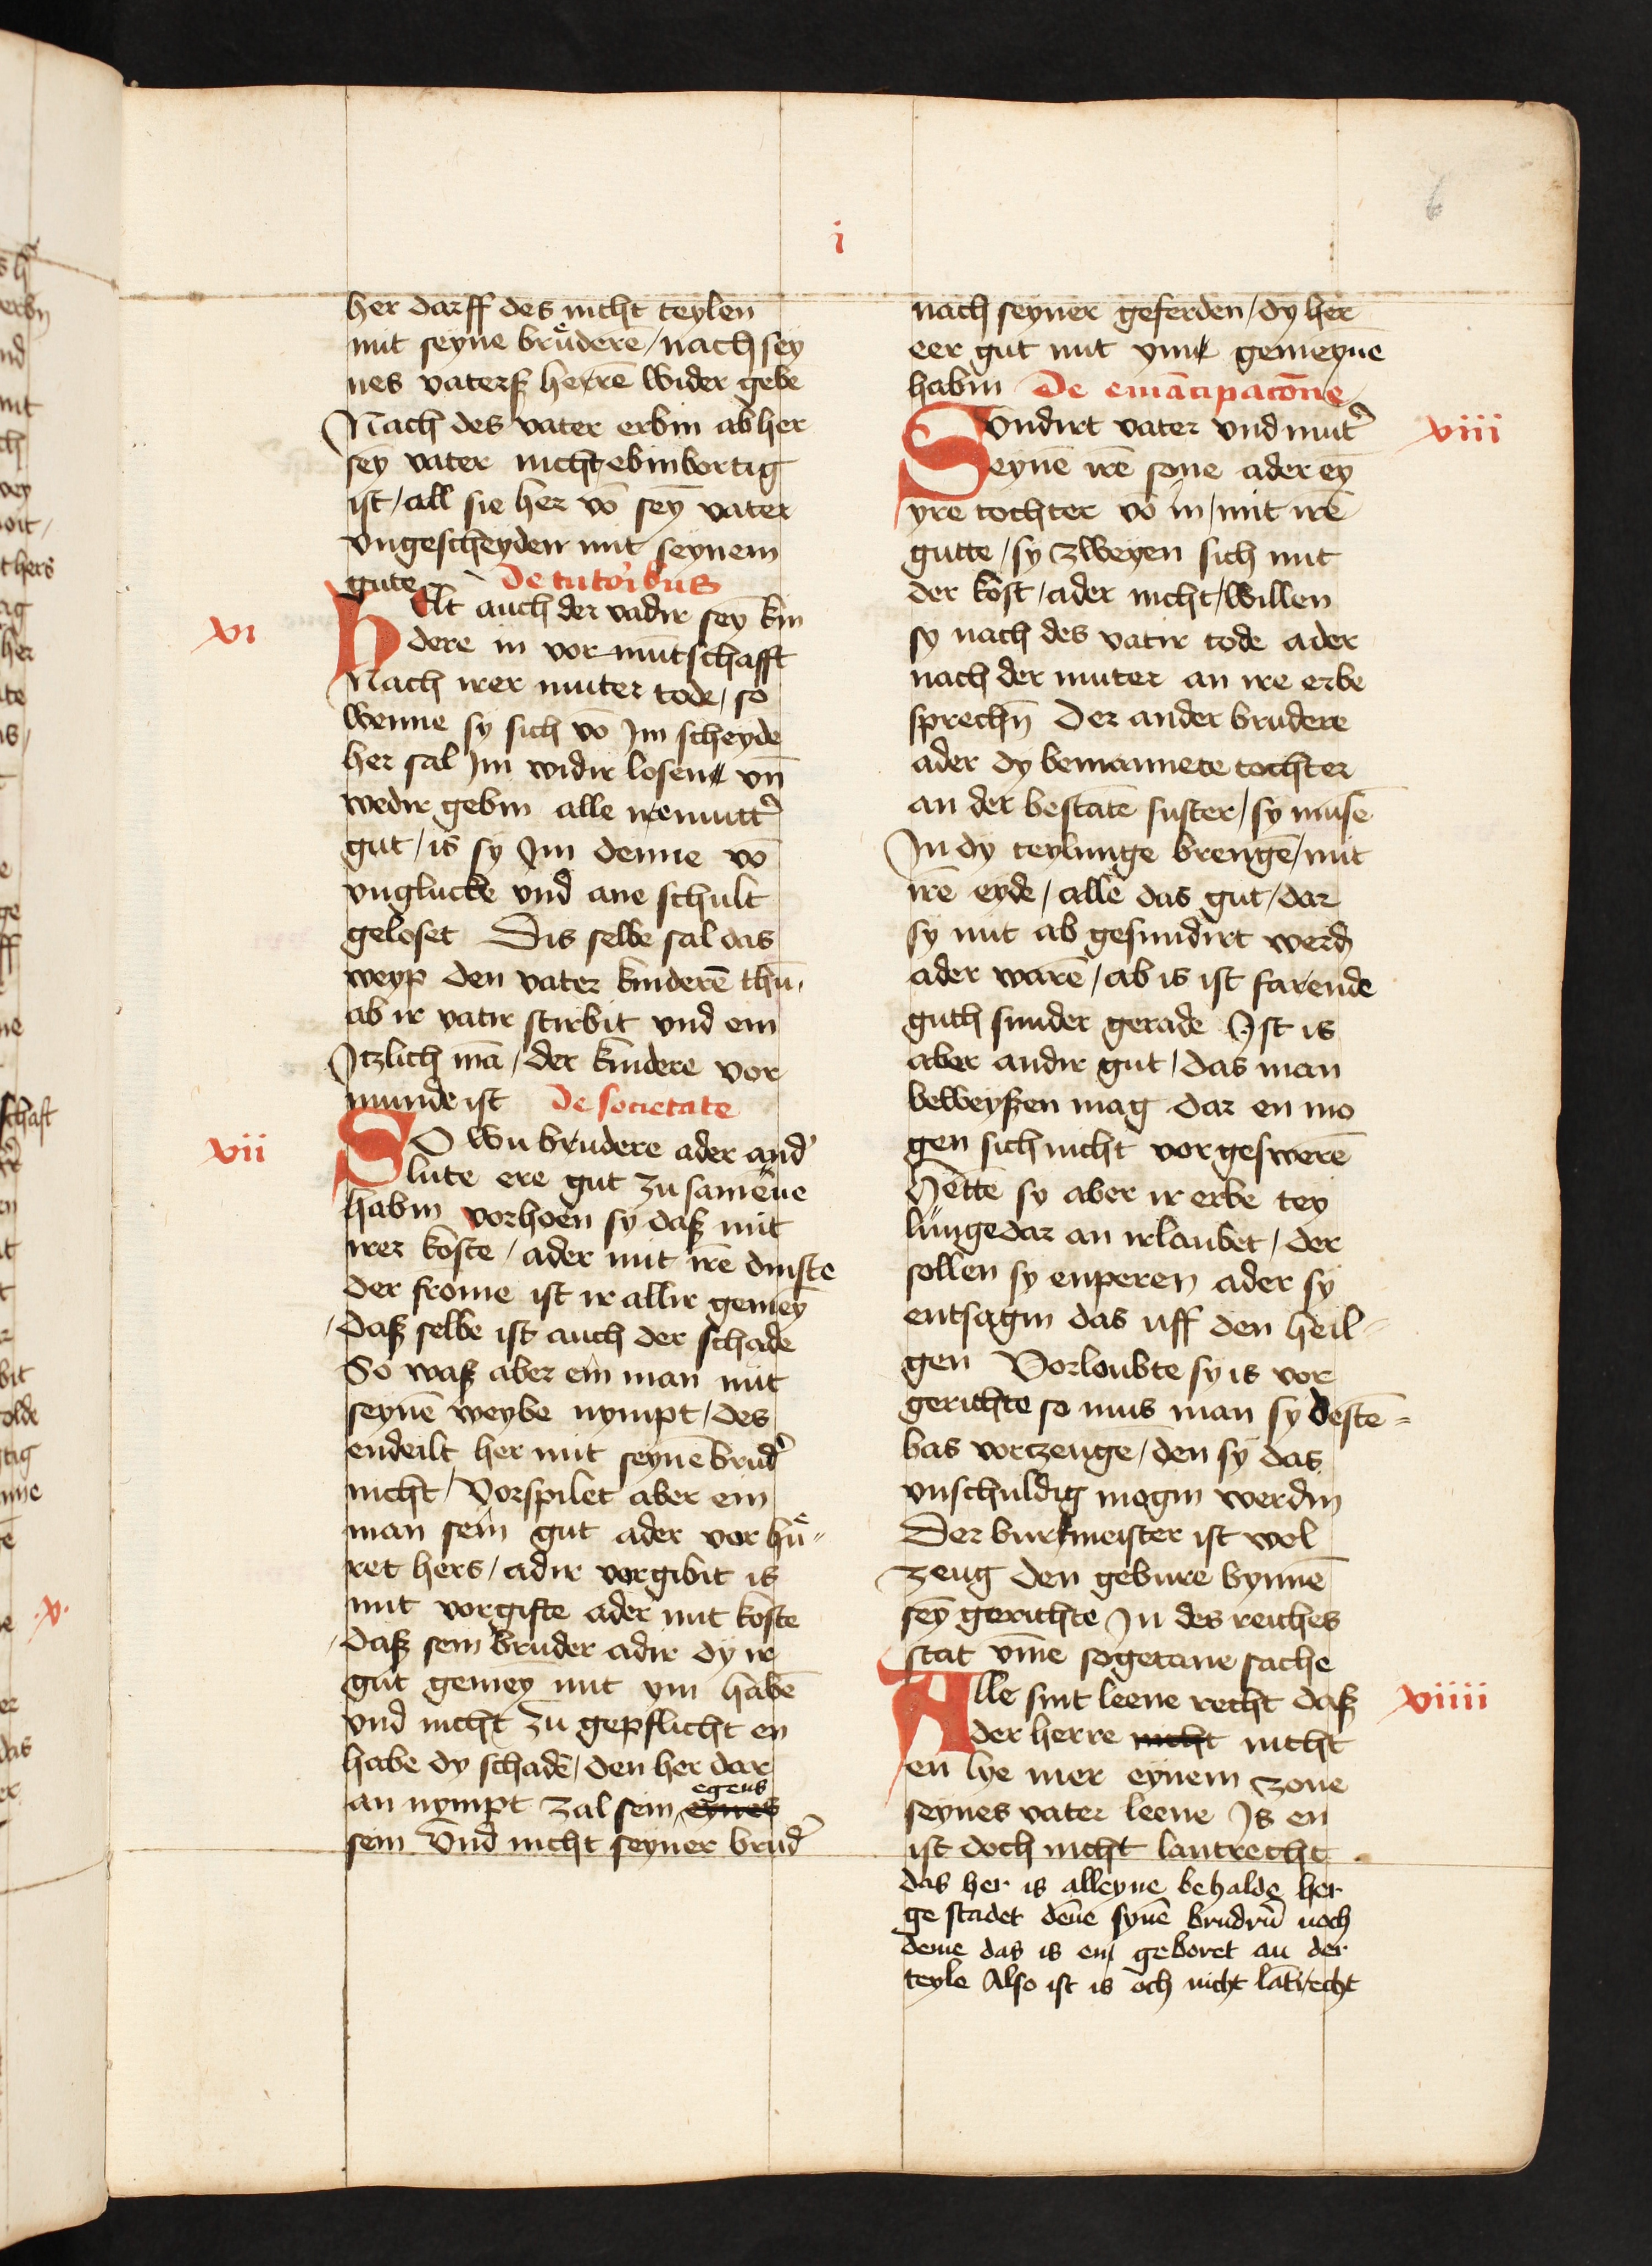 6
i
her darff des nicht teylen
mit seyne brůderē / nach sey
nes vaterß herrē wider gebe
Nach des vater erbin ab her
sey vater nicht ebinbortig
ist / all sie her vō seȳ vater
vngescheyden mit seynem
gute De tutoribus
vi
hElt auch der vadir seȳ kin
dere in vor mūtschafft
Nach irer muter tode / so
wenne sy sich vō Im scheyde
her sal Im widir losen vn̄
wedir gebin alle ire mutt'
gut / is sy Im denne vō
vnglucke vnd ane schult
geloset Dis selbe sal das
weyp den vater kinderē thū
ab ir vatir stirbit vnd ein
Itzlich mā / der kindere vor
munde ist De societate
vii
SO wu brudere ader and'
lute ere gut zu samēne
habin vorhoen sy daß mit
irer koste / ader mit irē dinste
der frome ist ir allir gemey
daß selbe ist auch der schade
So waß aber ein man mit
seynē weybe nympt / des
endeilt her mit seynē brud'
nicht / Vorspilet aber ein
man sein gut ader vor hů
ret hers / adir vorgibit is
mit vorgifte ader mit koste
daß sein bruder adir dy ir
gut gemey mit ym habē
vnd nicht zu gepflicht en
habe dy schadē / den her dar
an nympt zal sein eynes egens
sein Vnd nicht seyner brud'
nach seyner geferden / dy her
eer gut mit ym gemeyne
habin De emācipacōne
viii
SVndirt vater vnd mut'
eynē irē sone ader ey
yre tochter vō in / mit irē
gutte / sy zweyen sich mit
der kost / ader nicht / willen
sy nach des vatir tode ader
nach der muter an ire erbe
sprechn̄ Der ander brudere
ader dy bemannete tochter
an der bestatē suster / sy musē
In dy teylunge brengē / mit
irē eyde / alle das gut / dar
sy mit ab gesundirt werd
ader warē / ab is ist farende
guth sunder gerade Ist is
aber andir gut / das man
beweyßen mag dar en mo
gen sich nicht vor geswerē
Hette sy aber ir erbe tey
lunge dar an irlaubet / der
sollen sy enperen ader sy
entsagin das uff den heil-
gen Vorloubte sy is vor
gerichte so mus man sy destē=
bas vorzeuge / den sy das
vnschuldig mogin werdin
Der burkmeister ist wol
zeug den gebure bynnē
seȳ gerichte In des reiches
stat vm̄e sogetane sache
viiii
Alle sint leene recht daß
der herre nicht nicht
en lye mer eynem zone
seynes vater leene Is en
ist doch nicht lantrecht
das her is alleyne behalde her
ge stadet dēne synē brudrū noch
deme das is em geboret an der
teyle Also ist is och nicht lātrecht